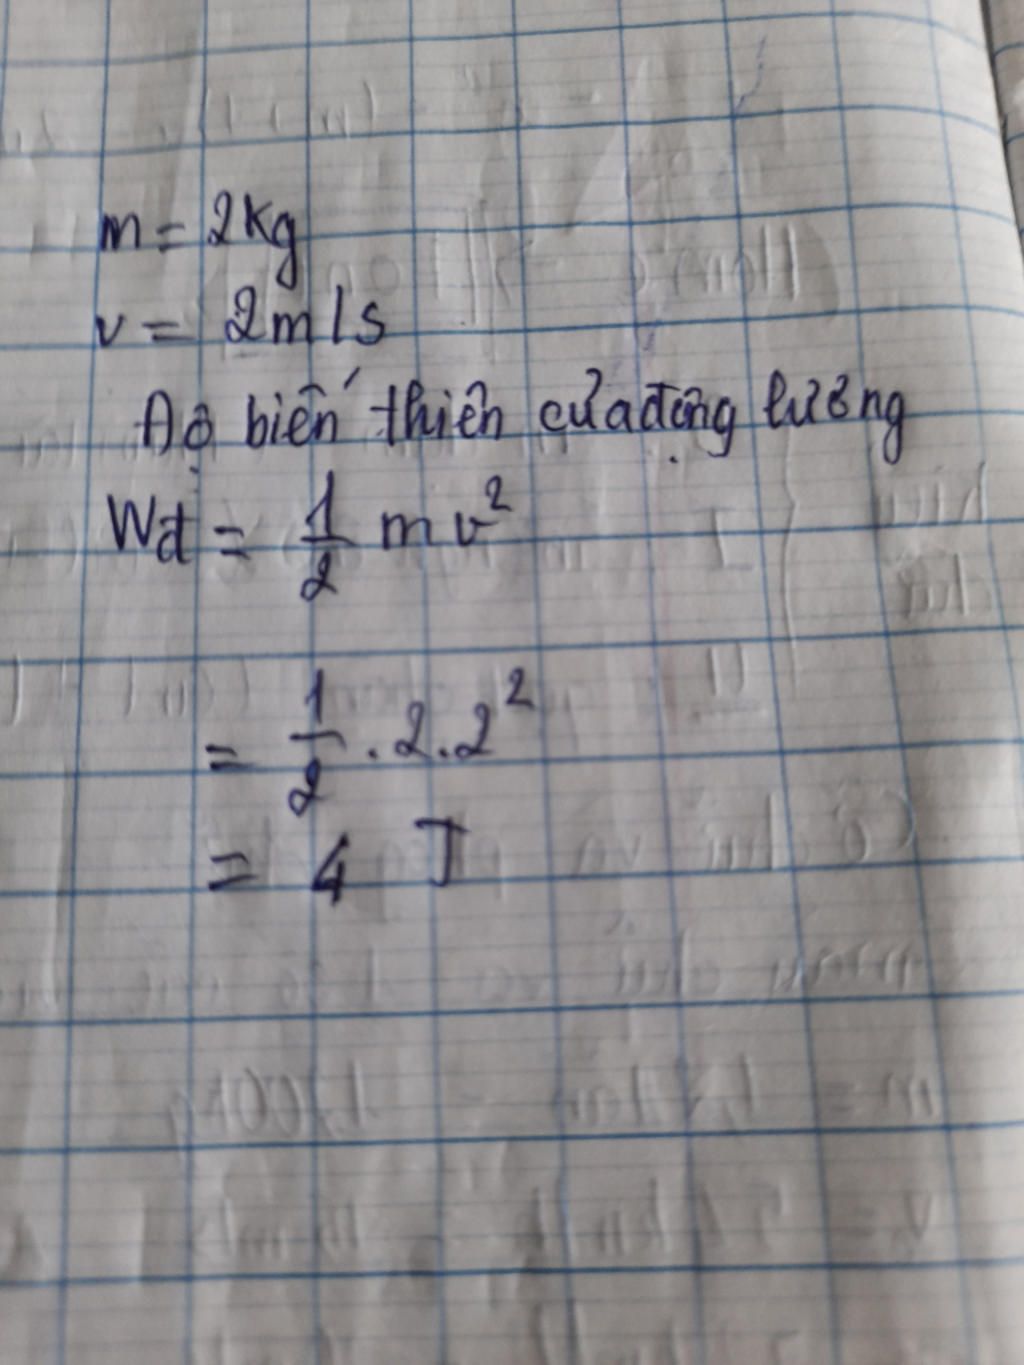 m = 2kg
v = 2m/s
Độ biến thiên của động lượng
Wđ = 1/2 mv²
= 1/2 . 2. 2²
= 4 J